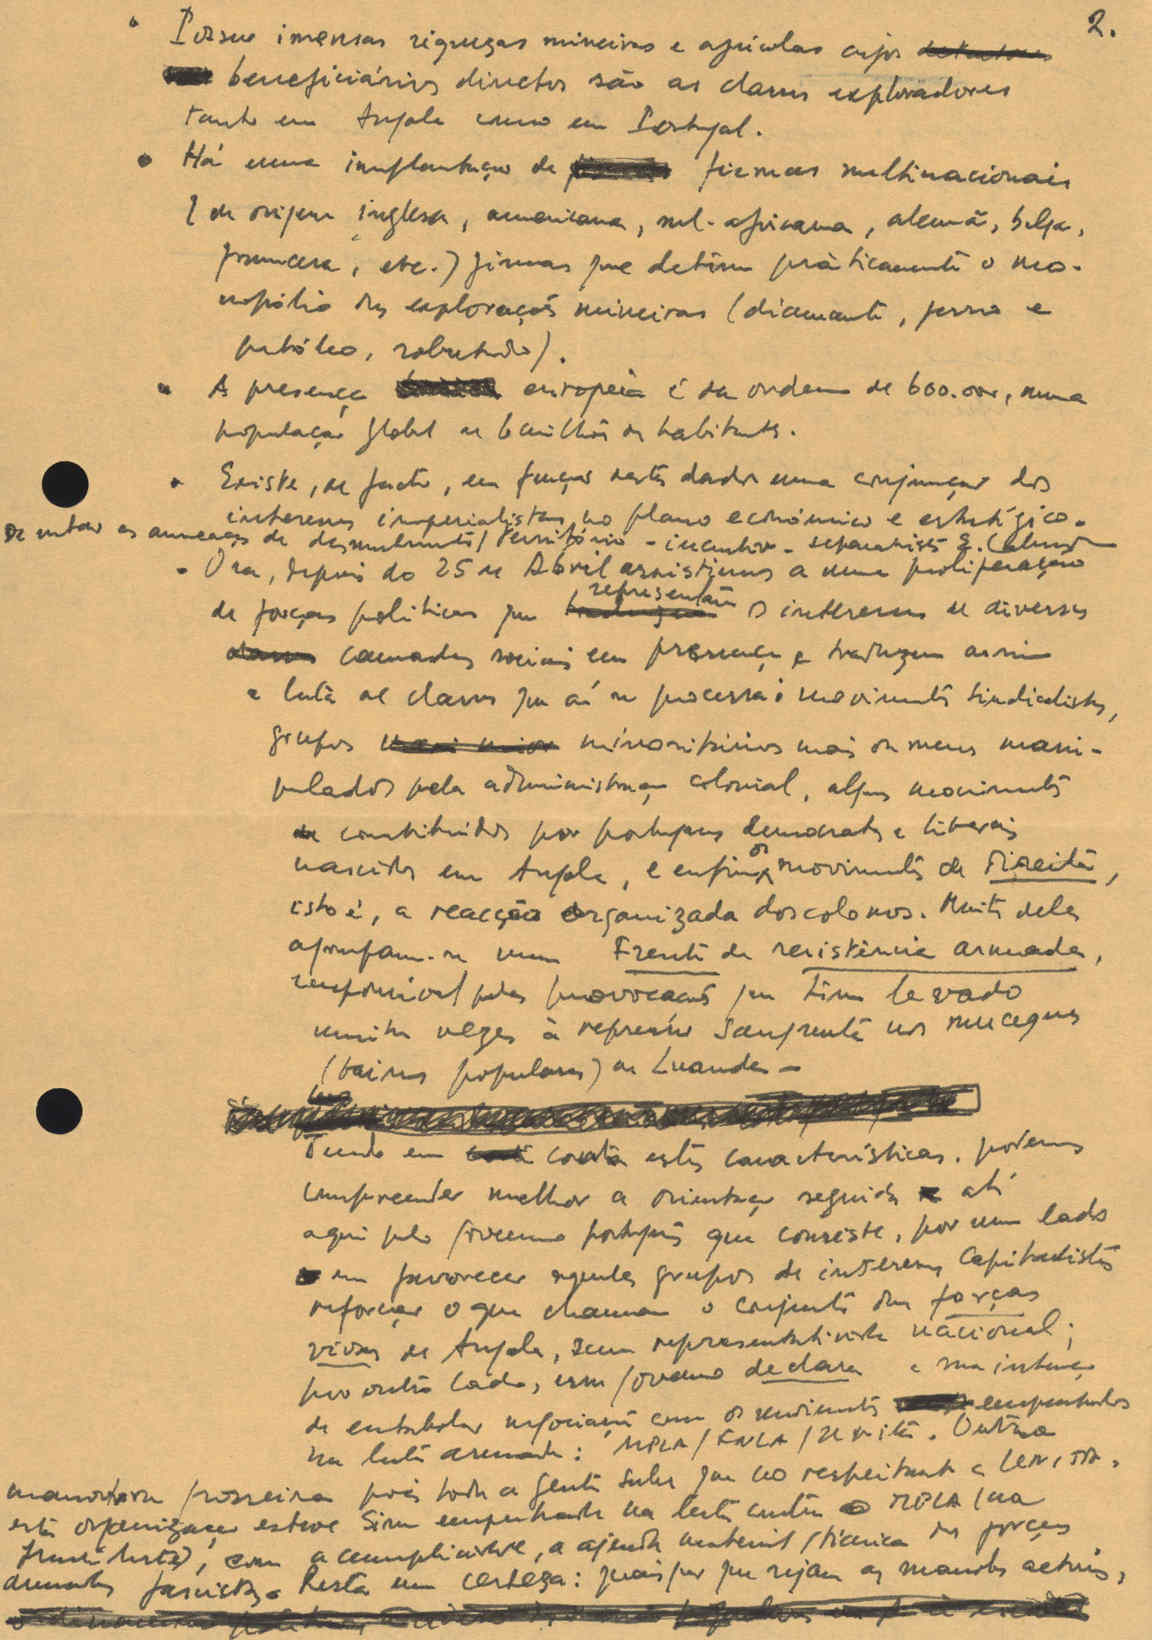 2.
• Possue imensas riquezas mineiras e agrícolas cujos
beneficiários directos são as classes exploradores
tanto em Angola como em Portugal.
• Há uma implantação de firmas multinacionais
(de origem inglesa, americana, sul-africana, alemã, belga,
francesa, etc.) firmas que detêm pràticamente o mo-
nopólio das explorações mineiras (diamante, ferro e
petróleo, sobretudo).
• A presença europeia é da ordem de 600.000, numa
população global de 6 milhões de habitantes.
• Existe, de facto, em função destes dados uma conjunção dos
interesses imperialistas no plano económico e estratégico.
De notar as ameaças de desmembramento território - incentivo - separatistas
• Ora, depois do 25 de Abril assistimos a uma proliferação
de forças políticas que representam os interesses de diversas
camadas sociais em presença e traduzem assim
a luta de classes que aí se processa: movimentos sindicalistas,
grupos minoritários mais ou menos mani-
pulados pela administração colonial, alguns movimentos
constituídos por portugueses democratas e liberais
nascidos em Angola, e enfim os movimentos de direita,
isto é, a reacção organizada dos colonos. Muitos deles
agrupam-se numa Frente de resistência armada,
responsável pelas provocações que têm levado
muitas vezes à repressão sangrenta nos muceques
(bairros populares) de Luanda -
Tendo em conta estas características, podemos
compreender melhor a orientação seguida até
aqui pelo governo português que consiste, por um lado
em favorecer aqueles grupos de interesses capitalistas
reforçar o que chamam o conjunto das forças
vivas de Angola, sem representatividade nacional;
por outro lado, esse governo declara a sua intenção
de entabular negociações com os movimentos empenhados
na luta armada: MPLA/FNLA/Unita. Outra
manobra grosseira pois toda a gente sabe que no respeitante a UNITA,
esta organização esteve sim empenhada na luta contra o MPLA (na
frente leste), com a cumplicidade, a ajuda material/técnica das forças
armadas fascistas. Resta uma certeza: quaisquer que sejam as manobras actuais,